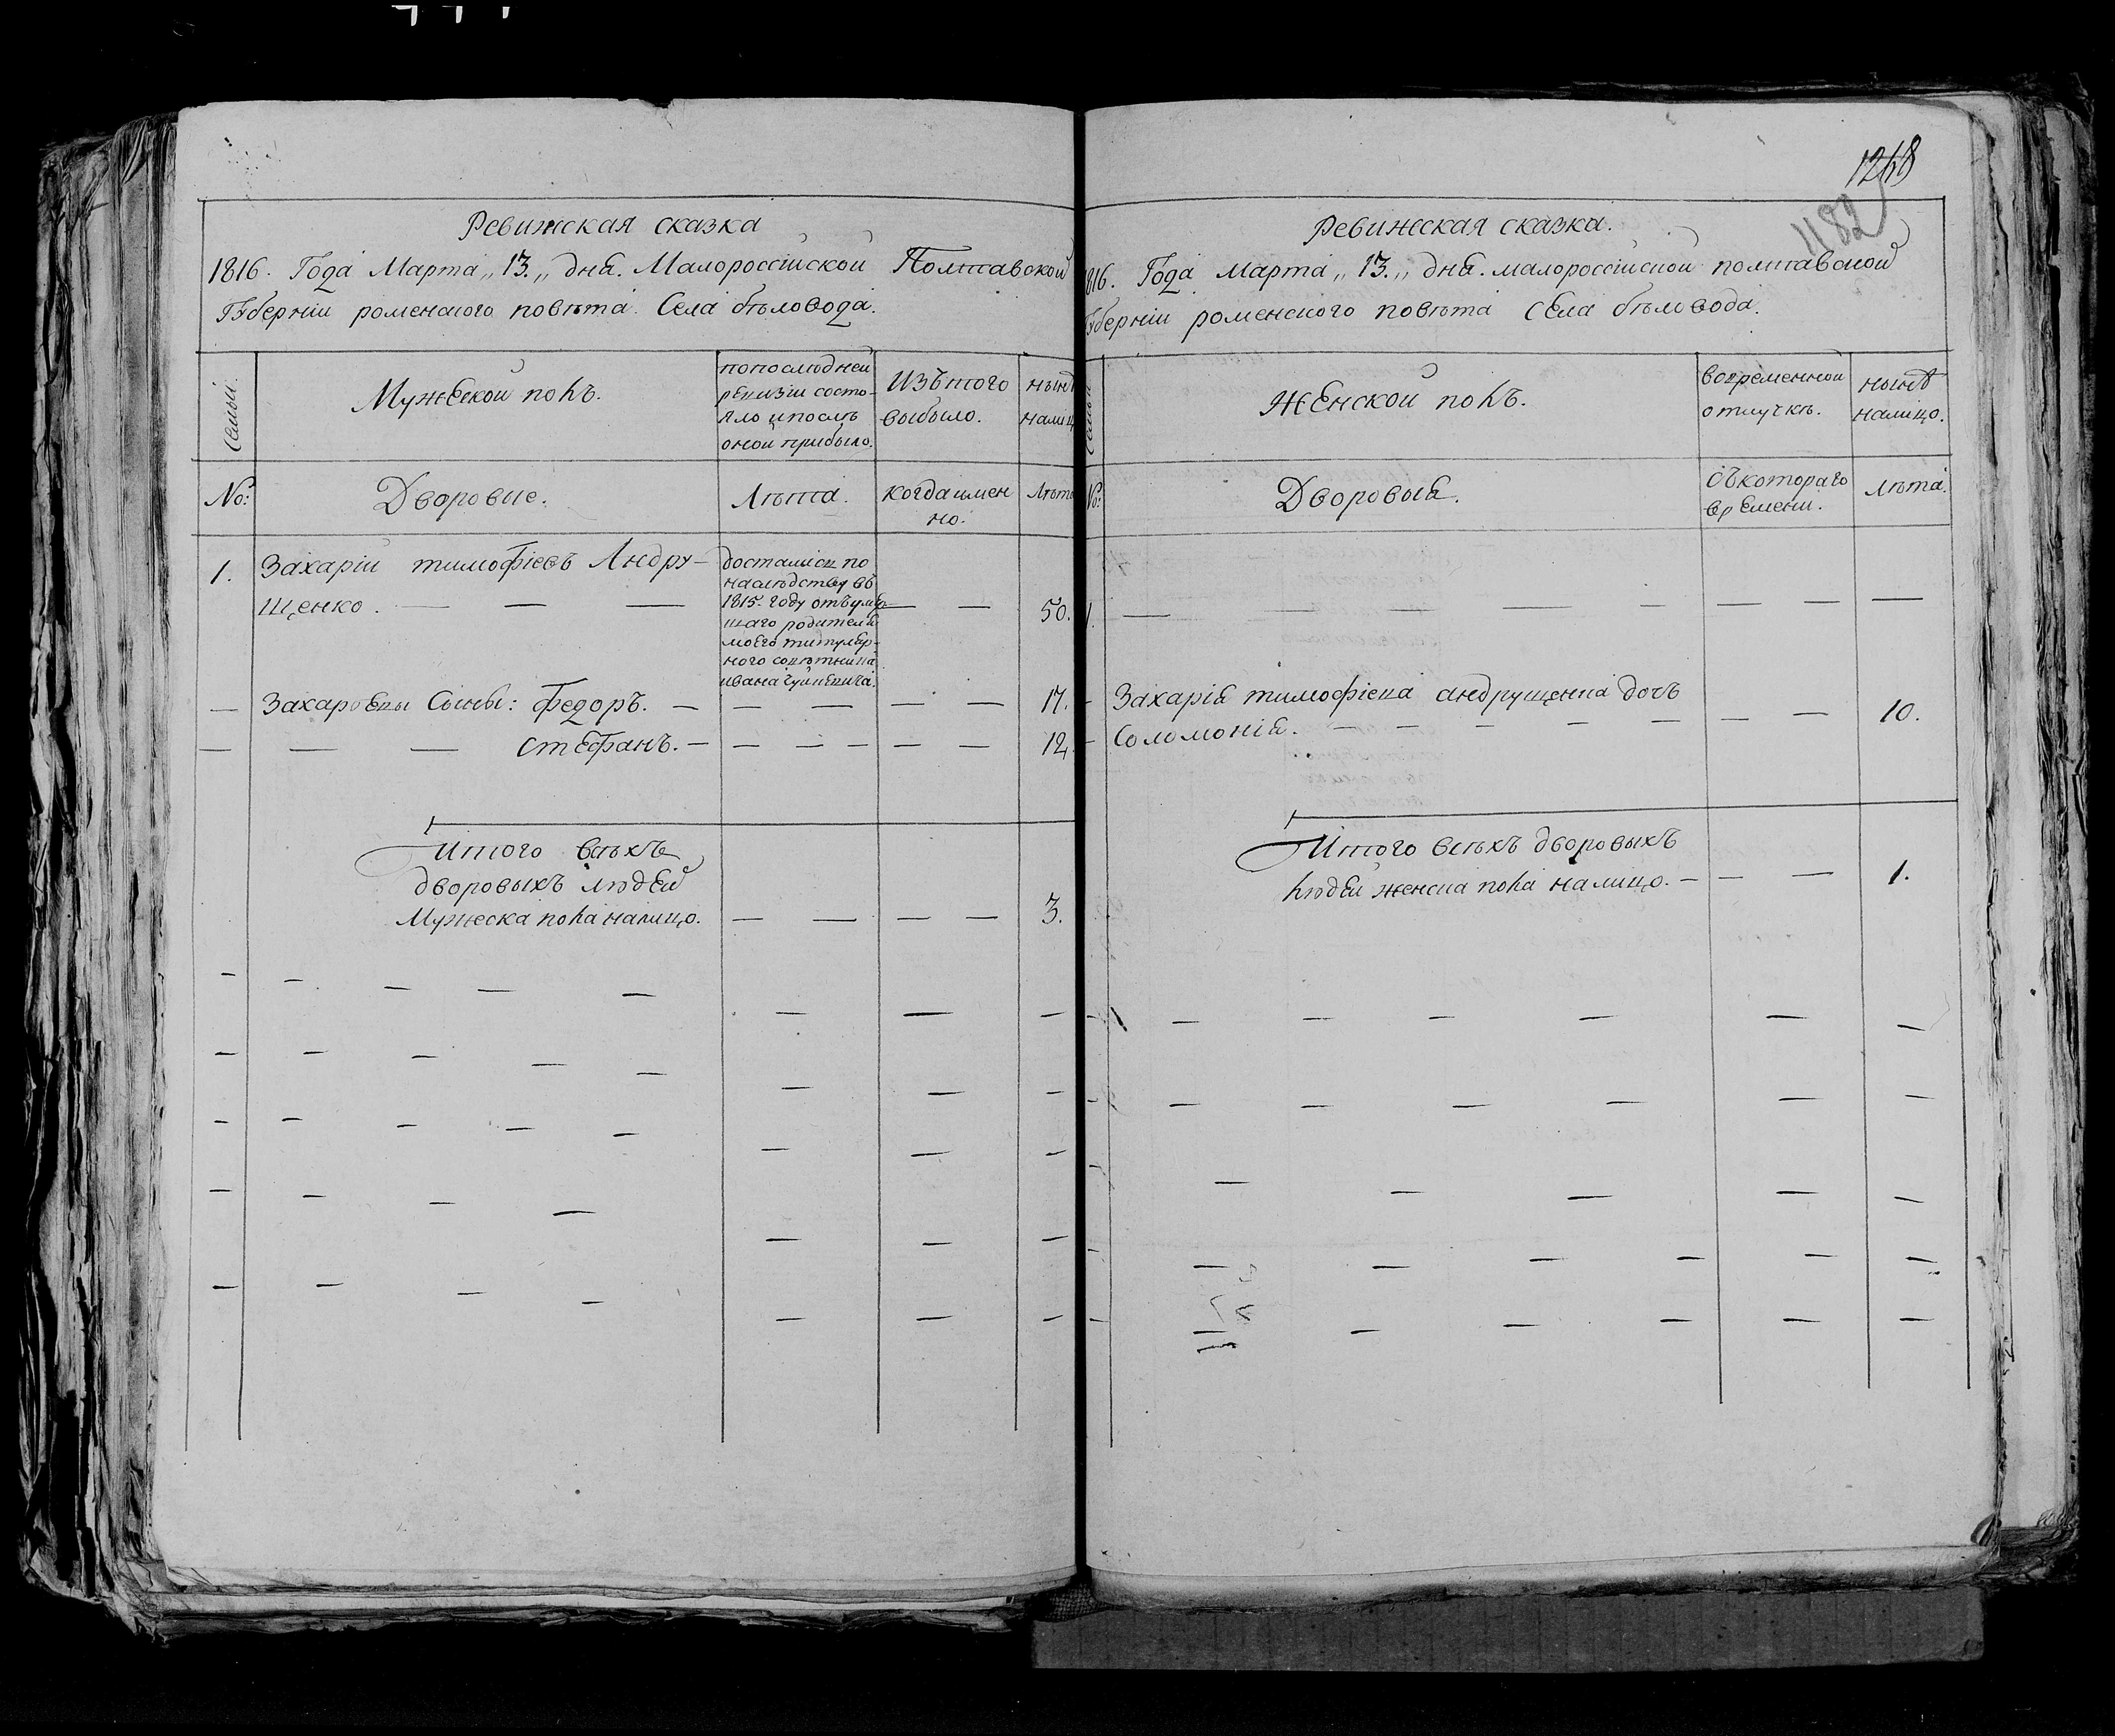 Ревижская сказка
1816. Года Марта „13.„ дня. Малороссійской Полтавской
Губерніи роменского повѣта. Села бѣловода.
Семьи.
Мужескои полъ.
попослѣдней
ревизіи состо-
яло ипослѣ
оной прибыло.
Изътого
выбыло.
нынѣ
налиц
No:
Дворовые.
Лѣта.
когдаимен
но.
Лѣта
1.
Захарій тимофіевъ Андру-
щенко. — — —
досталися по
наслѣдству въ
1815. году отъумер
шаго родителя
моего титуляр-
ного совѣтника
ивана
— —
50.
— Захаровы Сыны: Федоръ. — — — — — 17.
— — — Стефанъ. — — — — — — 12.
Итого всѣхъ
дворовыхъ людей
Мужеска пола налицо. — — — — 3.
1268
1182
Ревижская сказка.
816. Года Марта „13.„ дня. малороссійской полтавской
Губерніи роменского повѣта Села бѣловода.
Женской полъ.
вовременной
отлучкѣ.
нынѣ
налицо.
No:
Дворовыя.
Съкотораго
времени.
лѣта.
1. — — — — — — — —
— Захарія тимофіева андрущенка дочъ
— Соломонія. — — — — — — — 10.
Итого всѣхъ дворовыхъ
людей женска пола налицо. — — — 1.